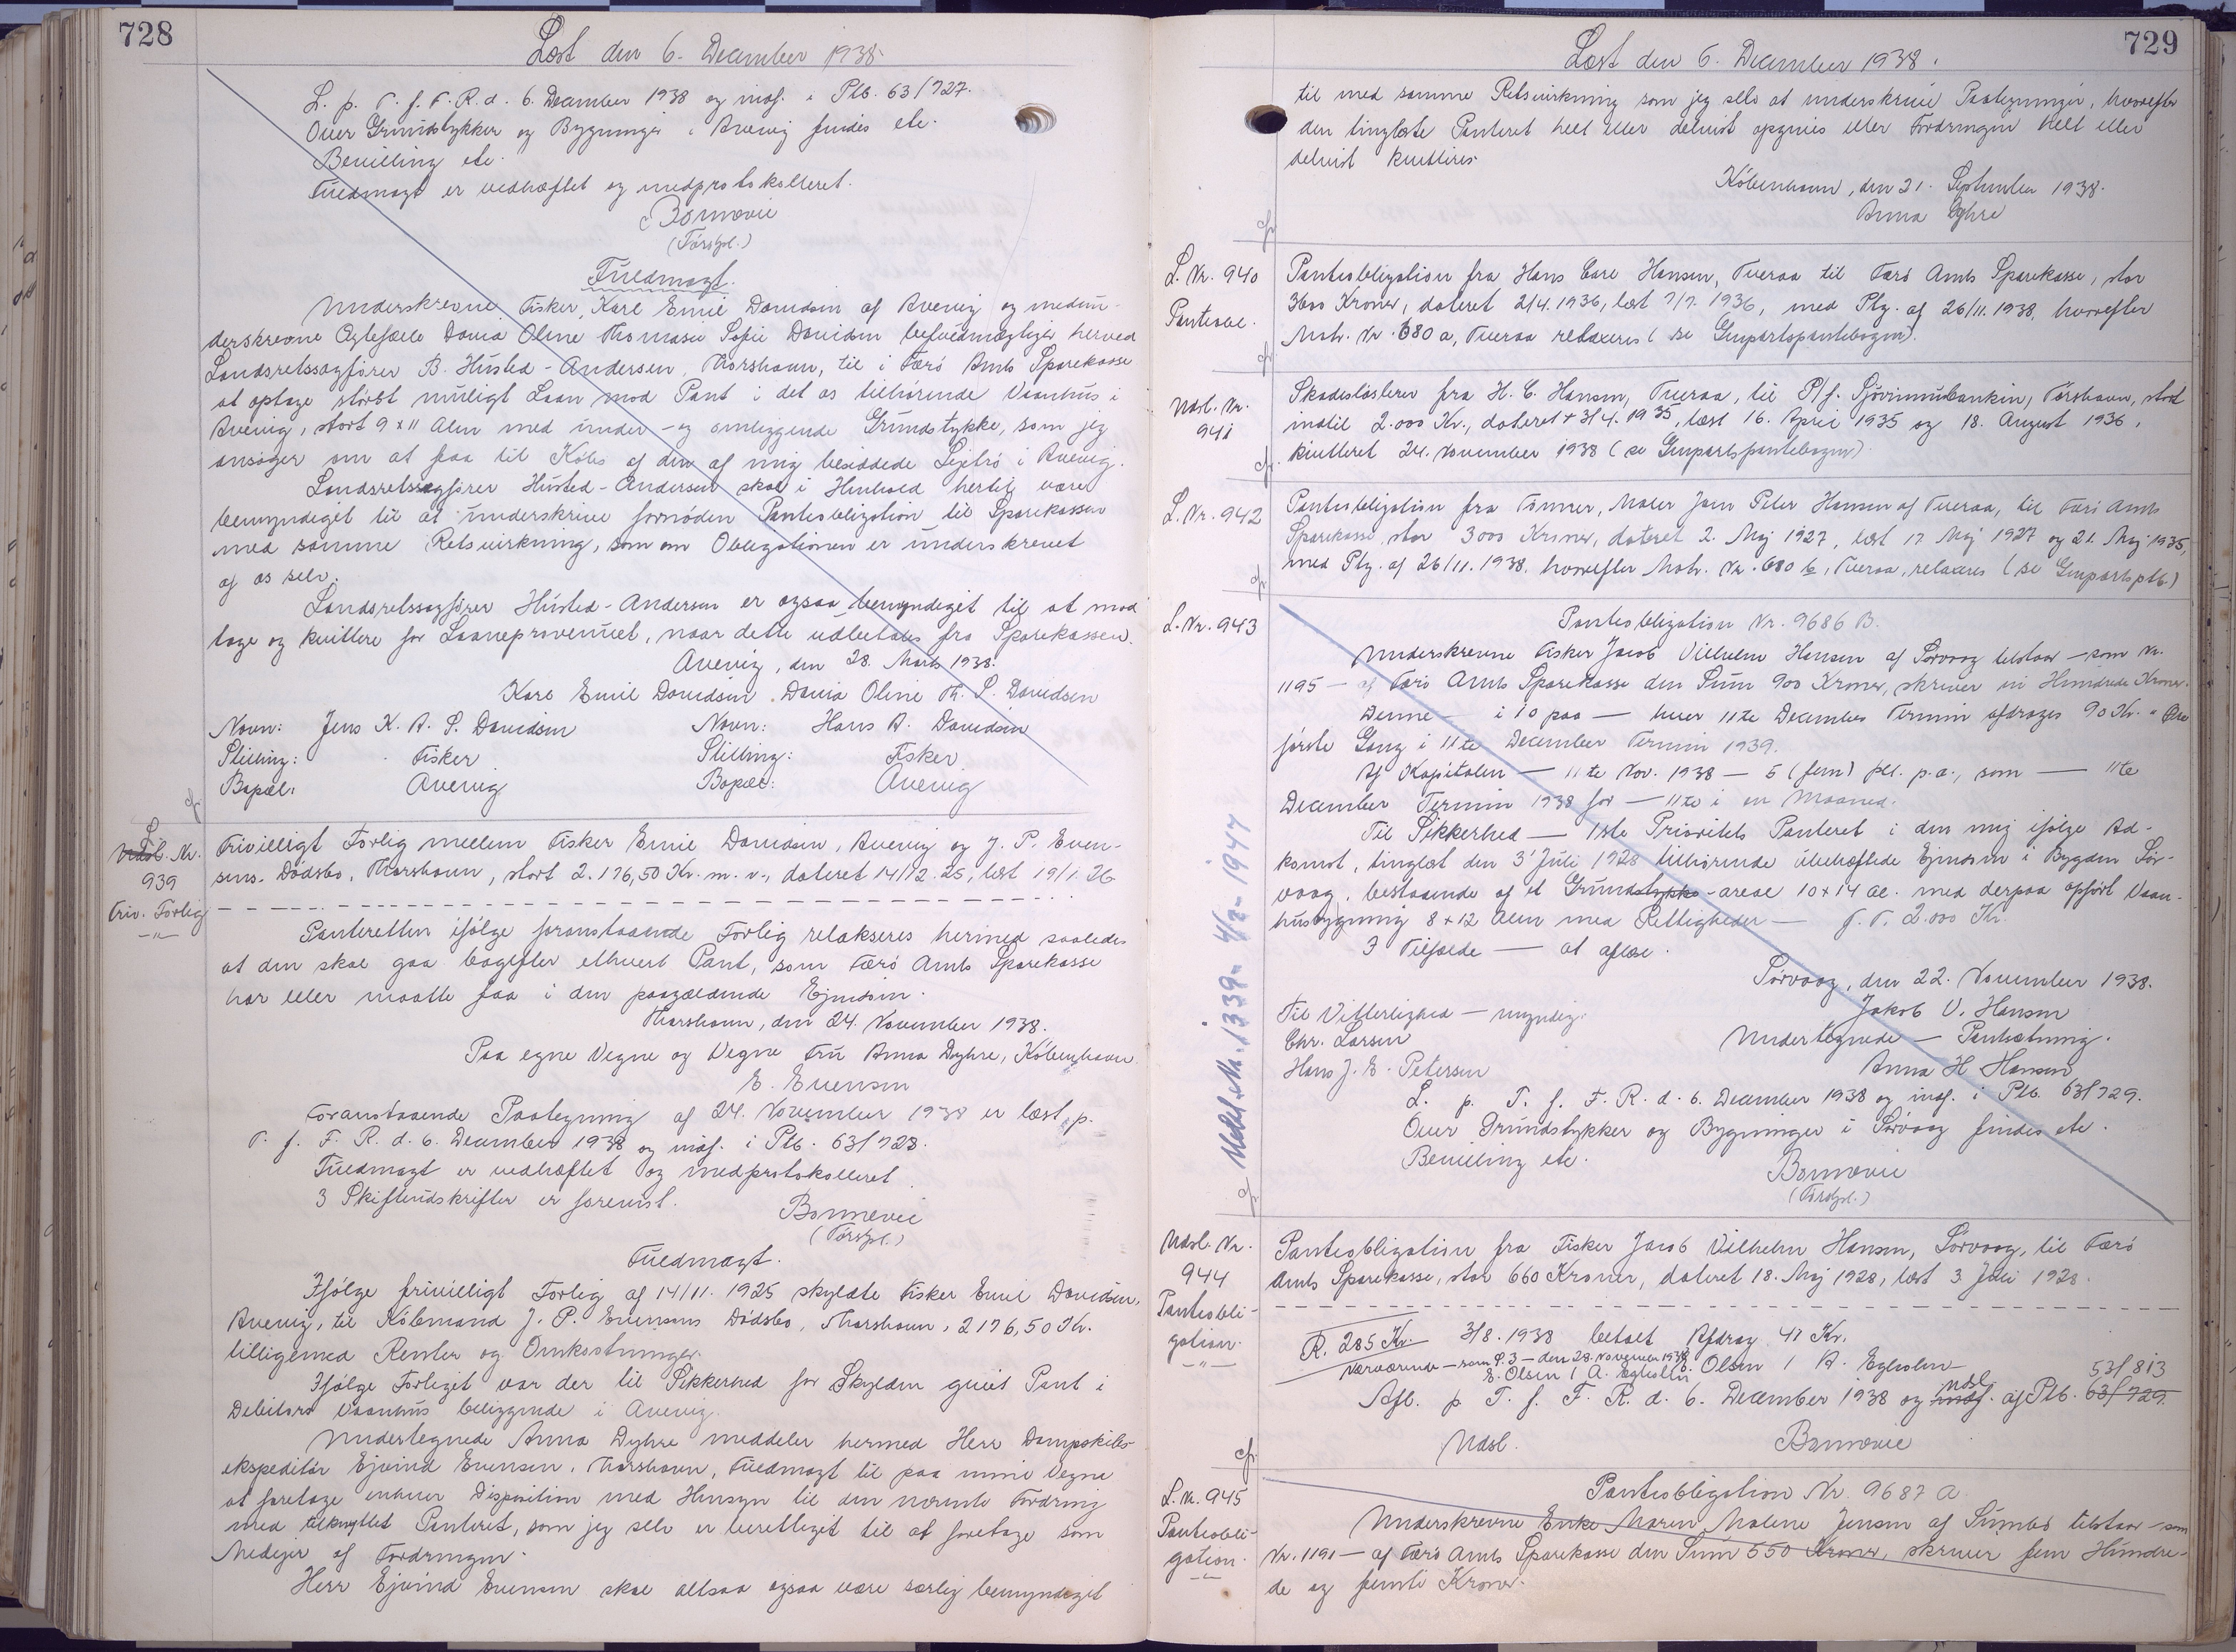 728
Læst den 6. December 1938.
L. p. T. f. F. R. d. 6. December 1938 og indf. i Ptb. 63/727.
Over Grundstykker og Bygninger i Avevig findes etc.
Bevilling etc.
Fuldmagt er vedhæftet og medprotokolleret.
Bornevie
(Forstpl.)
Fuldmagt.
Underskrevne Fisker, Karl Emil Davidsen af Avevig og medun-
derskrevne Ægtefælle Davia Oline Thomasie Sofie Davidsen befuldmægtiger herved
Landsretssagfører B. Husted-Andersen, Thorshavn, til i Færø Amts Sparekasse
at optage størst muligt Laan mod Pant i det os tilhørende Vaanhus i
Avevig, stort 9 x 11 Alen med under- og omliggende Grundstykke, som jeg
ansøger om at faa til Købs af den af mig besiddede Lejetrø i Avevig.
Landsretssagfører Husted-Andersen skal i Henhold hertil være
bemyndiget til at underskrive fornøden Panteobligation til Sparekassen
med samme Retsvirkning, som om Obligationen er underskrevet
af os selv.
Landsretssagfører Husted-Andersen er ogsaa bemyndiget til at mod
tage og kvittere for Laaneprovenuet, naar dette udbetales fra Sparekassen.
Avevig, den 28. Marts 1938.
Karl Emil Davidsen. Davia Oline Th. S. Davidsen
Navn: Jens K. A. S. Davidsen Navn: Hans A. Davidsen
Stilling: Fisker Stilling: Fisker
Bopæl: Avevig Bopæl: Avevig
cfr.
L.
Udsl. Nr.
939
Friv. Forlig
-"-
Frivilligt Forlig mellem Fisker Emil Davidsen, Avevig og J. P. Even-
sens Dødsbo, Thorshavn, stort 2.176,50 Kr. m. v., dateret 14/12.25, læst 19/1.26.
Panteretten ifølge foranstaaende Forlig relakseres hermed saaledes
at den skal gaa bagefter ethvert Pant, som Færø Amts Sparekasse
har eller maatte faa i den paagældende Ejendom.
Thorshavn, den 24. November 1938.
Paa egne Vegne og Vegne Fru Anna Dyhre, København
E. Evensen
Foranstaaende Paategning af 24. November 1938 er læst p.
T. f. F. R. d. 6. December 1938 og indf. i Ptb. 63/728.
Fuldmagt er vedhæftet og medprotokolleret.
3 Skifteudskrifter er forevist.
Bornevie
(Forstpl.)
Fuldmagt.
Ifølge frivilligt Forlig af 14/11. 1925 skyldte Fisker Emil Davidsen,
Avevig, til Købmand J. P. Evensens Dødsbo, Thorshavn, 2176,50 Kr.
tilligemed Renter og Omkostninger.
Ifølge Forliget var der til Sikkerhed for Skylden givet Pant i
Debitors Vaanhus beliggende i Avevig.
Undertegnede Anna Dyhre meddeler hermed Herr Dampskibs-
ekspeditør Ejvind Evensen, Thorshavn, Fuldmagt til paa mine Vegne
at foretage enhver Disposition med Hensyn til den nævnte Fordring
med tilknyttet Panteret, som jeg selv er berettiget til at foretage som
Medejer af Fordringen.
Herr Ejvind Evensen skal altsaa ogsaa være særlig bemyndiget
729
Læst den 6. December 1938.
til med samme Retsvirkning som jeg selv at underskrive Paategninger, hvorefter
den tinglæste Panteret helt eller delvist opgives eller Fordringen helt eller
delvist kvitteres.
København, den 21. September 1938.
Anna Dyhre
cfr.
L. Nr. 940
Panteobl.
Panteobligation fra Hans Carl Hansen, Tveraa til Færø Amts Sparekasse, stor
3600 Kroner, dateret 2/4. 1936, læst 7/7. 1936, med Ptg. af 26/11. 1938, hvorefter
Matr. Nr. 680 a, Tveraa relaxeres (se Genpartspantebogen).
cfr.
Udsl. Nr.
941
Skadesløsbrev fra H. C. Hansen, Tveraa, til P/f. Sjóvinnubankin, Tórshavn, stort
indtil 2.000 Kr., dateret 3/4. 1935, læst 16. April 1935 og 18. August 1936,
kvitteret 24. November 1938 (se Genpartspantebogen).
cfr.
L. Nr. 942
Panteobligation fra Tømrer, Maler Jens Peter Hansen af Tveraa, til Færø Amts
Sparekasse, stor 3000 Kroner, dateret 2. Maj 1927, læst 17 Maj 1927 og 21. Maj 1935,
med Ptg. af 26/11. 1938, hvorefter Matr. Nr. 680 b, Tveraa, relaxeres (se Genpartsptb.)
cfr.
L. Nr. 943
Panteobligation Nr. 9686 B.
Underskrevne Fisker Jacob Vilhelm Hansen af Sørvaag tilstaar - som Nr.
1195 - af Færø Amts Sparekasse den Sum 900 Kroner, skriver ni Hundrede Kroner.
Denne - i 10 paa - hver 11te December Termin afdrages 90 Kr.
første Gang i 11te December Termin 1939.
Af Kapitalen - 11te Nov. 1938 - 5 (fem) pCt. p.a., som - 11te
December Termin 1938 for - 11te i en Maaned.
Til Sikkerhed - 1ste Prioritets Panteret i den mig ifølge Ad-
komst, tinglæst den 3' Juli 1928 tilhørende ubehæftede Ejendom i Bygden Sør-
vaag, bestaaende af et Grundstykke-areal 10 x 14 Al. med derpaa opført Vaan-
husbygning 8 x 12 Alen med Rettigheder - T. V. 2.000 Kr.
I Tilfælde - at aflæse.
Sørvaag, den 22. November 1938.
Jakob V. Hansen
Til Vitterlighed - myndig. Undertegnede - Pantsætning.
Chr. Larsen Anna H Hansen
Hans J. E. Petersen
L. p. T. f. F. R. d. 6. December 1938 og indf. i Ptb. 63/729.
Over Grundstykker og Bygninger i Sørvaag findes etc.
Bevilling etc.
Bornevie
(Forstpl.)
Udsl. Nr. 1339 - 4/3 - 1947
cfr.
Udsl. Nr.
944
Panteobli-
gation.
-"-
Panteobligation fra Fisker Jacob Vilhelm Hansen, Sørvaag, til Færø
Amts Sparekasse, stor 660 Kroner, dateret 18. Maj 1928, læst 3 Juli 1928.
R. 285 Kr. 3/8. 1938 betalt Afdrag 41 Kr.
E. Olsen / A. Egholm
Nærværende - som P. 3 - den 28. November 1938
E. Olsen / A. Egholm
53/813
Afl. p. T. f. F. R. d. 6. December 1938 og indf. udsl. af Ptb. 63/729.
Udsl. Bornevie
cfr.
L. Nr. 945
Panteobli-
gation.
-"-
Panteobligation Nr. 9687 A
Underskrevne Enke Maren Malene Jensen af Sumbø tilstaar - som
Nr. 1191 - af Færø Amts Sparekasse den Sum 550 Kroner, skriver fem Hundre-
de og femti Kroner.